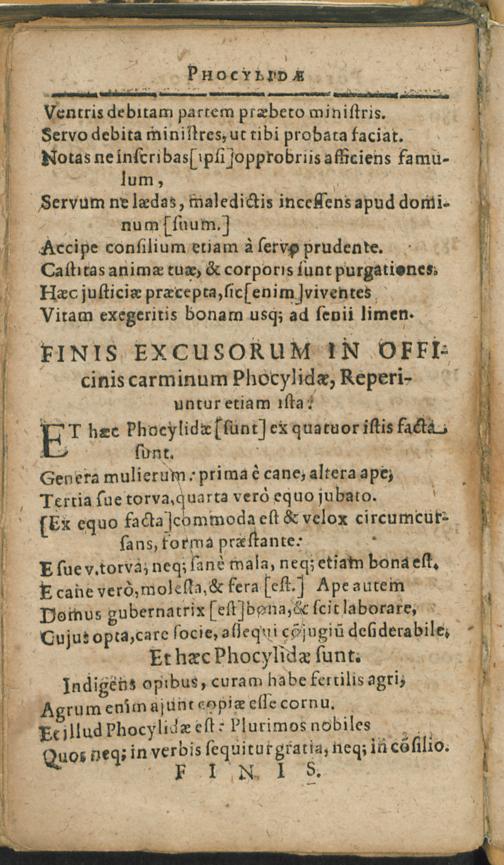 PHOCYLIDÆ
Ventris debitam partem præbeto miniſtris.
Servo debita miniſtres, ut tibi probata faciat.
Notas ne inſcribas[ipſi]opprobriis afficiens famu-
lum,
Servum ne lædas, maledictis inceſſens apud domi-
num [ſuum.]
Accipe conſilium etiam à ſervo prudente.
Caſtitas animæ tuæ, & corporis ſunt purgationes.
Hæc juſticiæ præcepta, ſic[enim]viventes
Vitam exegeritis bonam usq; ad ſenii limen.
FINIS EXCUSORUM IN OFFI-
cinis carminum Phocylidæ, Reperi-
untur etiam iſta:
ET hæc Phocylidæ [ſunt] ex quatuor iſtis facta
ſunt.
Genera mulierum: prima è cane, altera ape,
Tertia ſue torva, quarta verò equo jubato.
[Ex equo facta]commoda eſt & velox circumcur-
ſans, forma præſtante:
E ſue v. torva, neq; ſanè mala, neq; etiam bona eſt.
E cane verò, moleſta, & fera [eſt.] Ape autem
Domus gubernatrix [eſt]bona, & ſcit laborare,
Cujus opta, care ſocie, aſſequi cõjugiũ deſiderabile,
Et hæc Phocylidæ ſunt.
Indigens opibus, curam habe fertilis agri,
Agrum enim ajunt copiæ eſſe cornu.
Et illud Phocylidæ eſt: Plurimos nobiles
Quos neq; in verbis ſequitur gratia, neq; in cõſilio.
F I N I S.